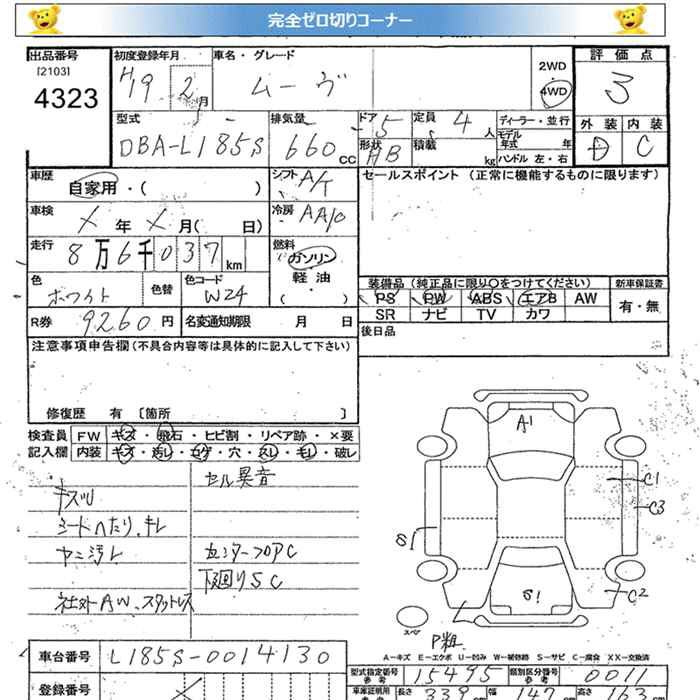 完全ゼロ切りコーナー
出品番号
[2103]
4323
初度登録年月
H19 2月
車名・グレード
ムーヴ
2WD
4WD
評価点
3
外装 内装
D C
型式
DBA-L185S
排気量
660 cc
ドア 5
形状 HB
定員 4 人
積載 kg
ディーラー・並行
モデル年式 年
ハンドル 左・右
車歴
自家用・( )
シフト A/T
セールスポイント (正常に機能するものに限ります)
車検
X年 X月( 日)
冷房 AAC
走行
8万6千037 km
燃料
ガソリン
軽油
・
( )
色
ホワイト
色替
色コード
W24
装備品 (純正品に限り○をつけてください)
新車保証書
PS PW ABS エアB AW
SR ナビ TV カワ
有・無
R券 9260円
名変通知期限 月 日
後日品
注意事項申告欄 (不具合内容等は具体的に記入して下さい)
修復歴 有 [箇所 ]
検査員
記入欄
FW キズ・飛石・ヒビ割・リペア跡・×要
内装 キズ・汚レ・コゲ・穴・スレ・モレ・破レ
キズU
セル異音
シートヘたり、キレ
ヤニ汚レ
センターフロアC
下回りSC
社外AW、スタットレス
A1
C1
C3
S
S1
C2
スペア
P粗
A−キズ E−エクボ U−凹み W−補修跡 S−サビ C−腐食 XX−交換済
車台番号
L185S-0014130
型式指定番号
参考
15495
類別区分番号
参考
0011
登録番号
車庫証明用
参考
長さ 339
幅 147
高さ 163